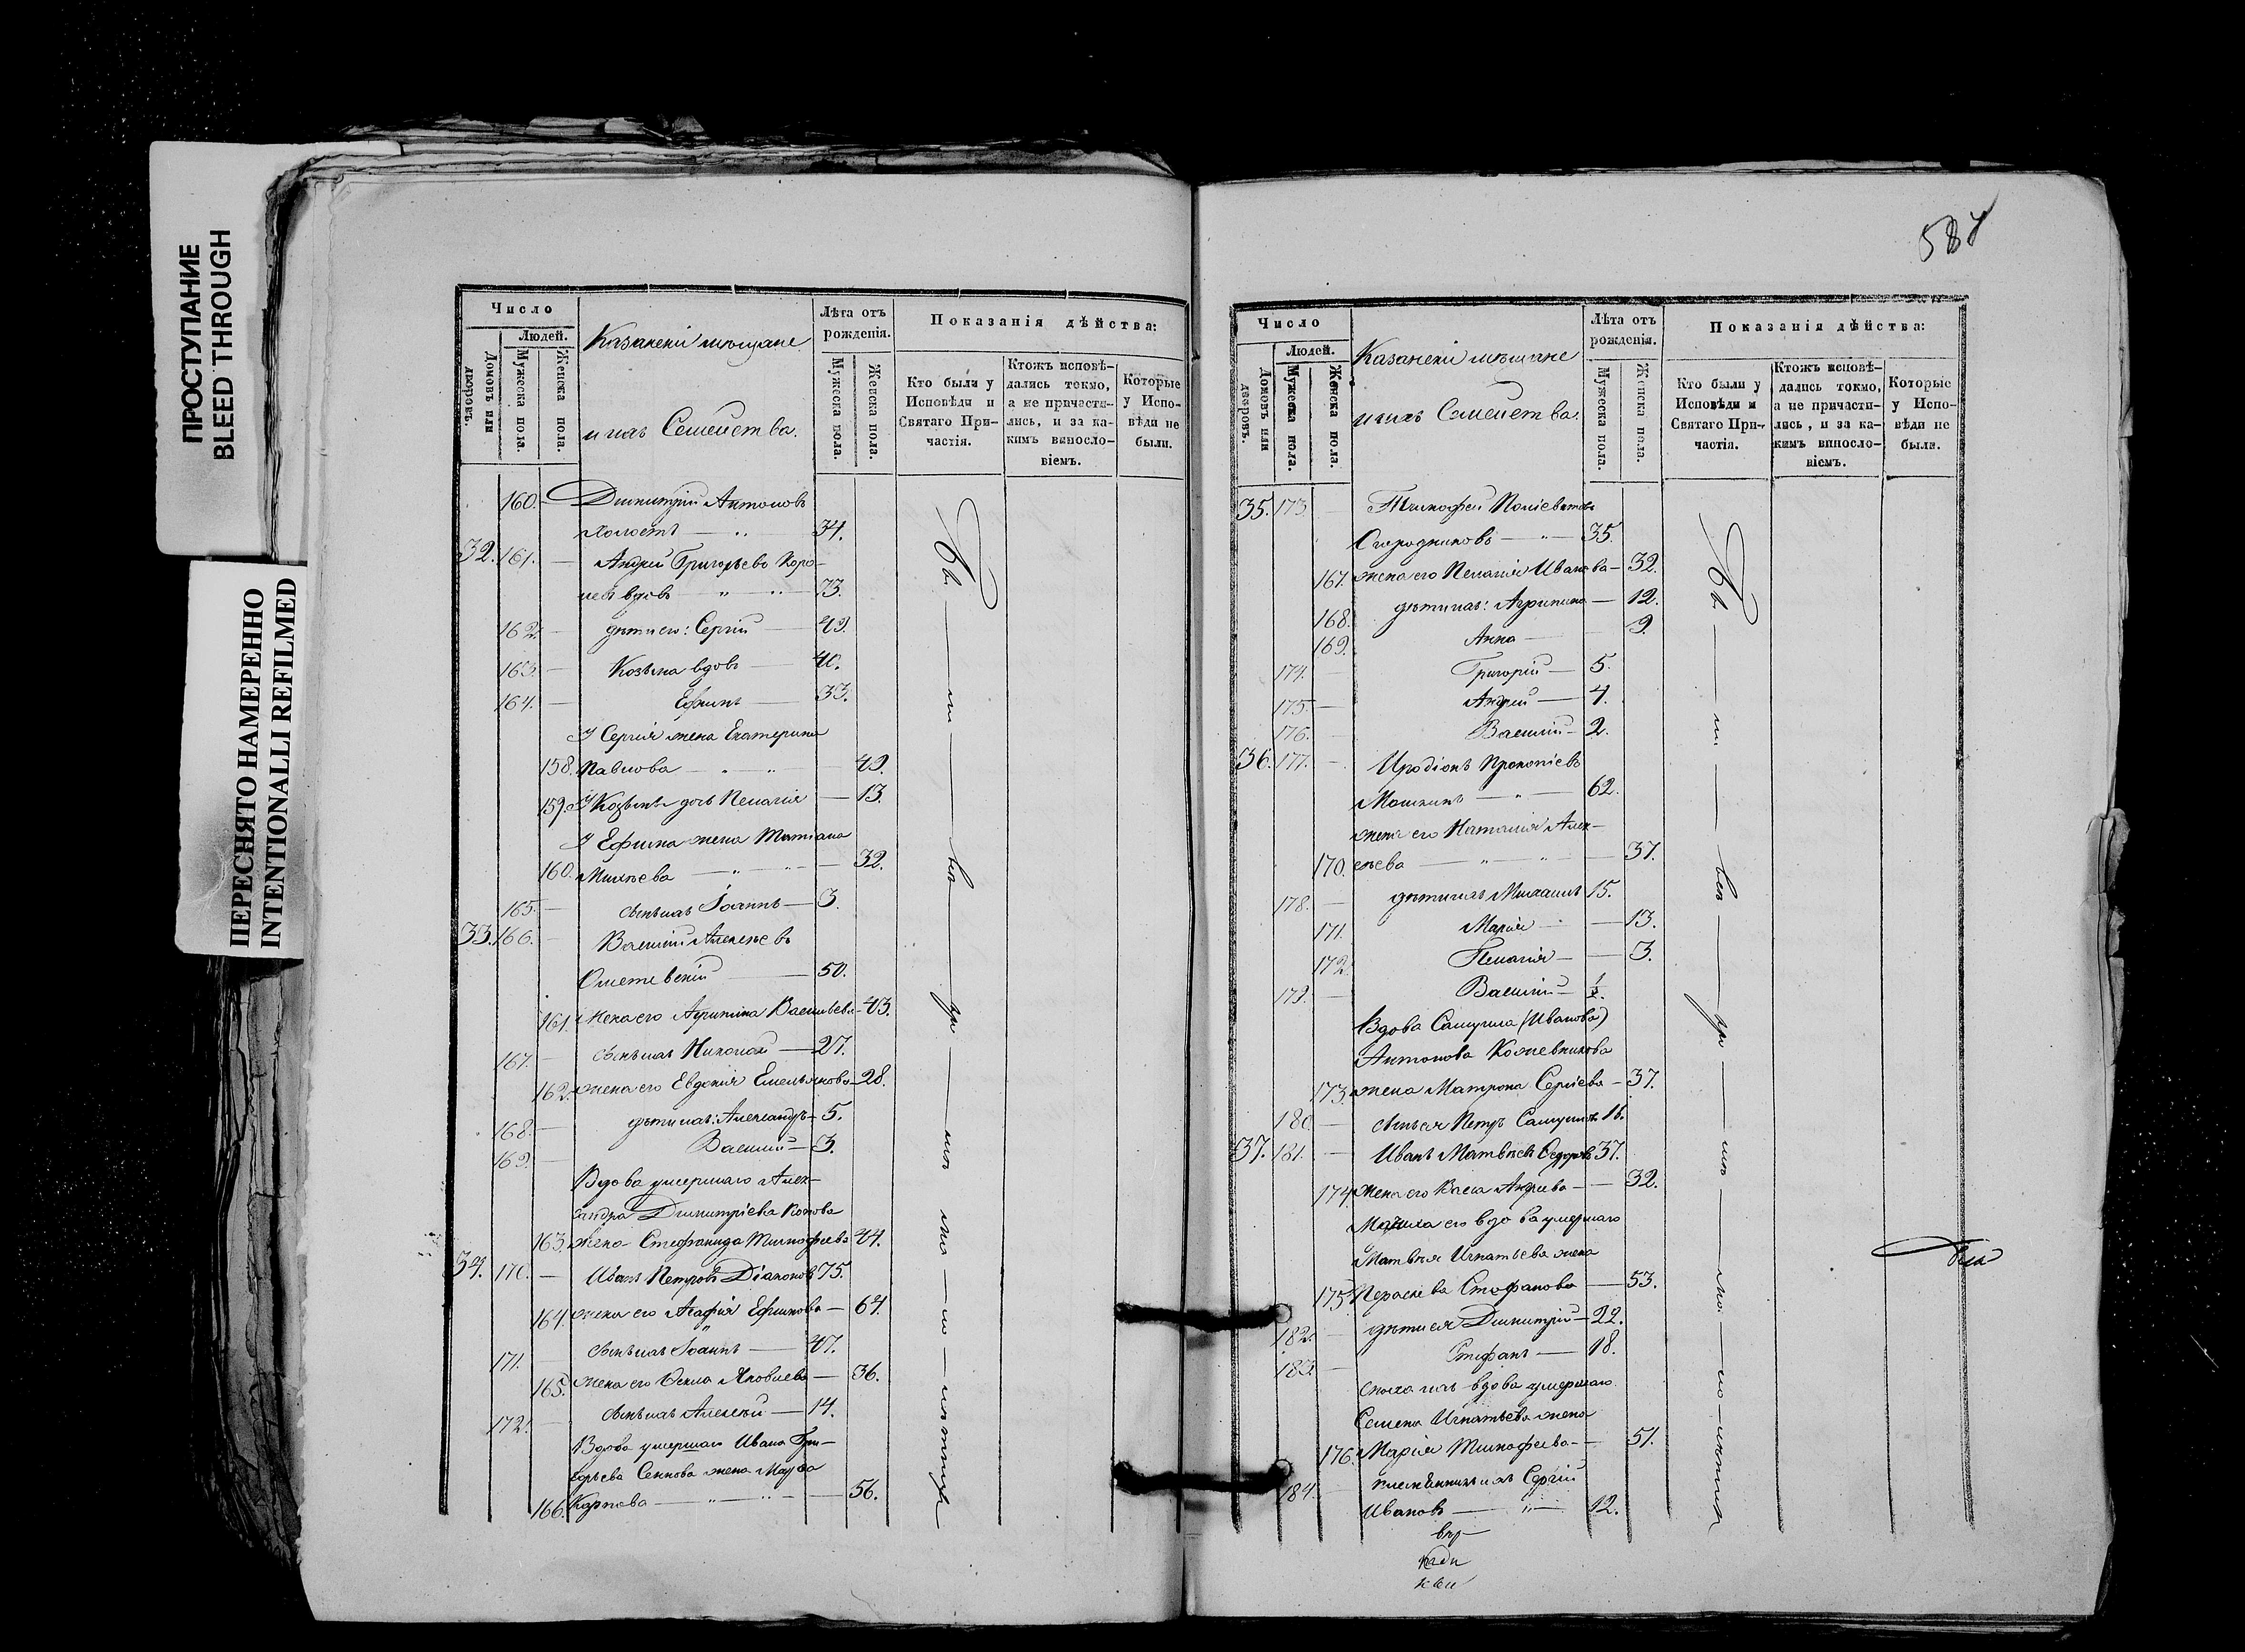 ПРОСТУПАНИЕ
BLEED THROUGH
ПЕРЕСНЯТО НАМЕРЕННО
INTENTIONALLI REFILMED
Число
Людей.
Домовъ или дворовъ.
Мужеска пола.
Женска пола.
Казанскіи мѣщане
и ихъ Семейства.
Лѣта отъ рожденія.
Мужеска пола.
Женска пола.
Показанія дѣйства:
Кто были у Исповѣди и Святаго Причастія.
Ктожъ исповѣдались токмо, а не причастились, и за какимъ винословіемъ.
Которые у Исповѣди не были.
160. Димитрій Антоновъ
холостъ 34.
32. 161. Андрей Григорьевъ
вдовъ 73.
162. дѣти его: Сергій 49.
163. Козьма вдовъ 40.
164. Ефимъ 33.
У Сергія жена Екатерина
158. Павлова 49.
159. У Козьмы дочь Пелагія 13.
У Ефима жена Татіана
160. Михѣева 32.
165. сынъ ихъ Іоаннъ 3.
33. 166. Василій Алексѣевъ
50.
161. Жена его Агрипина Васильева 43.
167. сынъ ихъ Николай 27.
162. жена его Евдокія Емельянова 28.
168. дѣти ихъ: Александръ 5.
169. Василій 3.
Вдова умершаго Алек-
сандра Димитріева Котова
163. жена Стефанида Тимофеева 44.
34. 170. Иванъ Петровъ Діаконовъ 75.
164. жена его Агафія Ефимова 64.
171. сынъ ихъ Іоаннъ 47.
165. жена его Ѳекла Яковлева 36.
172. сынъ ихъ Алексѣй 14.
Вдова умершаго Ивана Гри-
горьева Сеннова жена Марѳа
166. Карпова 56.
587
Число
Людей.
Домовъ или дворовъ.
Мужеска пола.
Женска пола.
Казанскіи мѣщане
и ихъ Семейства.
Лѣта отъ рожденія.
Мужеска пола.
Женска пола.
Показанія дѣйства:
Кто были у Исповѣди и Святаго Причастія.
Ктожъ исповѣдались токмо, а не причастились, и за какимъ винословіемъ.
Которые у Исповѣди не были.
35. 173. Тимофей
Огородниковъ 35.
167. жена его Пелагія Иванова 32.
168. дѣти ихъ: Агрипина 12.
169. Анна 9.
174. Григорій 5.
175. Андрей 4.
176. Василій 2.
36. 177. Иродіонъ Прокопіевъ
Мошкинъ 62.
жена его Наталія Алек-
170. сѣева 37.
178. дѣти ихъ Михаилъ 15.
171. Марія 13.
172. Пелагія 3.
179. Василій
Вдова Самуила (Иванова)
Антонова Кожевникова
173. жена Матрона Сергіева 37.
180. сынъ ея Петръ Самуиловъ 16.
37. 181. Иванъ Матвѣевъ Ѳедоровъ 37.
174. жена его Васса Андреева 32.
Мачиха его вдова умершаго
Матвѣя Игнатьева жена
175. Параскева Стефанова 53.
182. дѣти ея Димитрій 22.
183. Стефанъ 18.
сноха ихъ вдова умершаго
Семена Игнатьева жена
176. Марія Тимофеева 51.
184. племянникъ ихъ Сергій
Ивановъ 12.